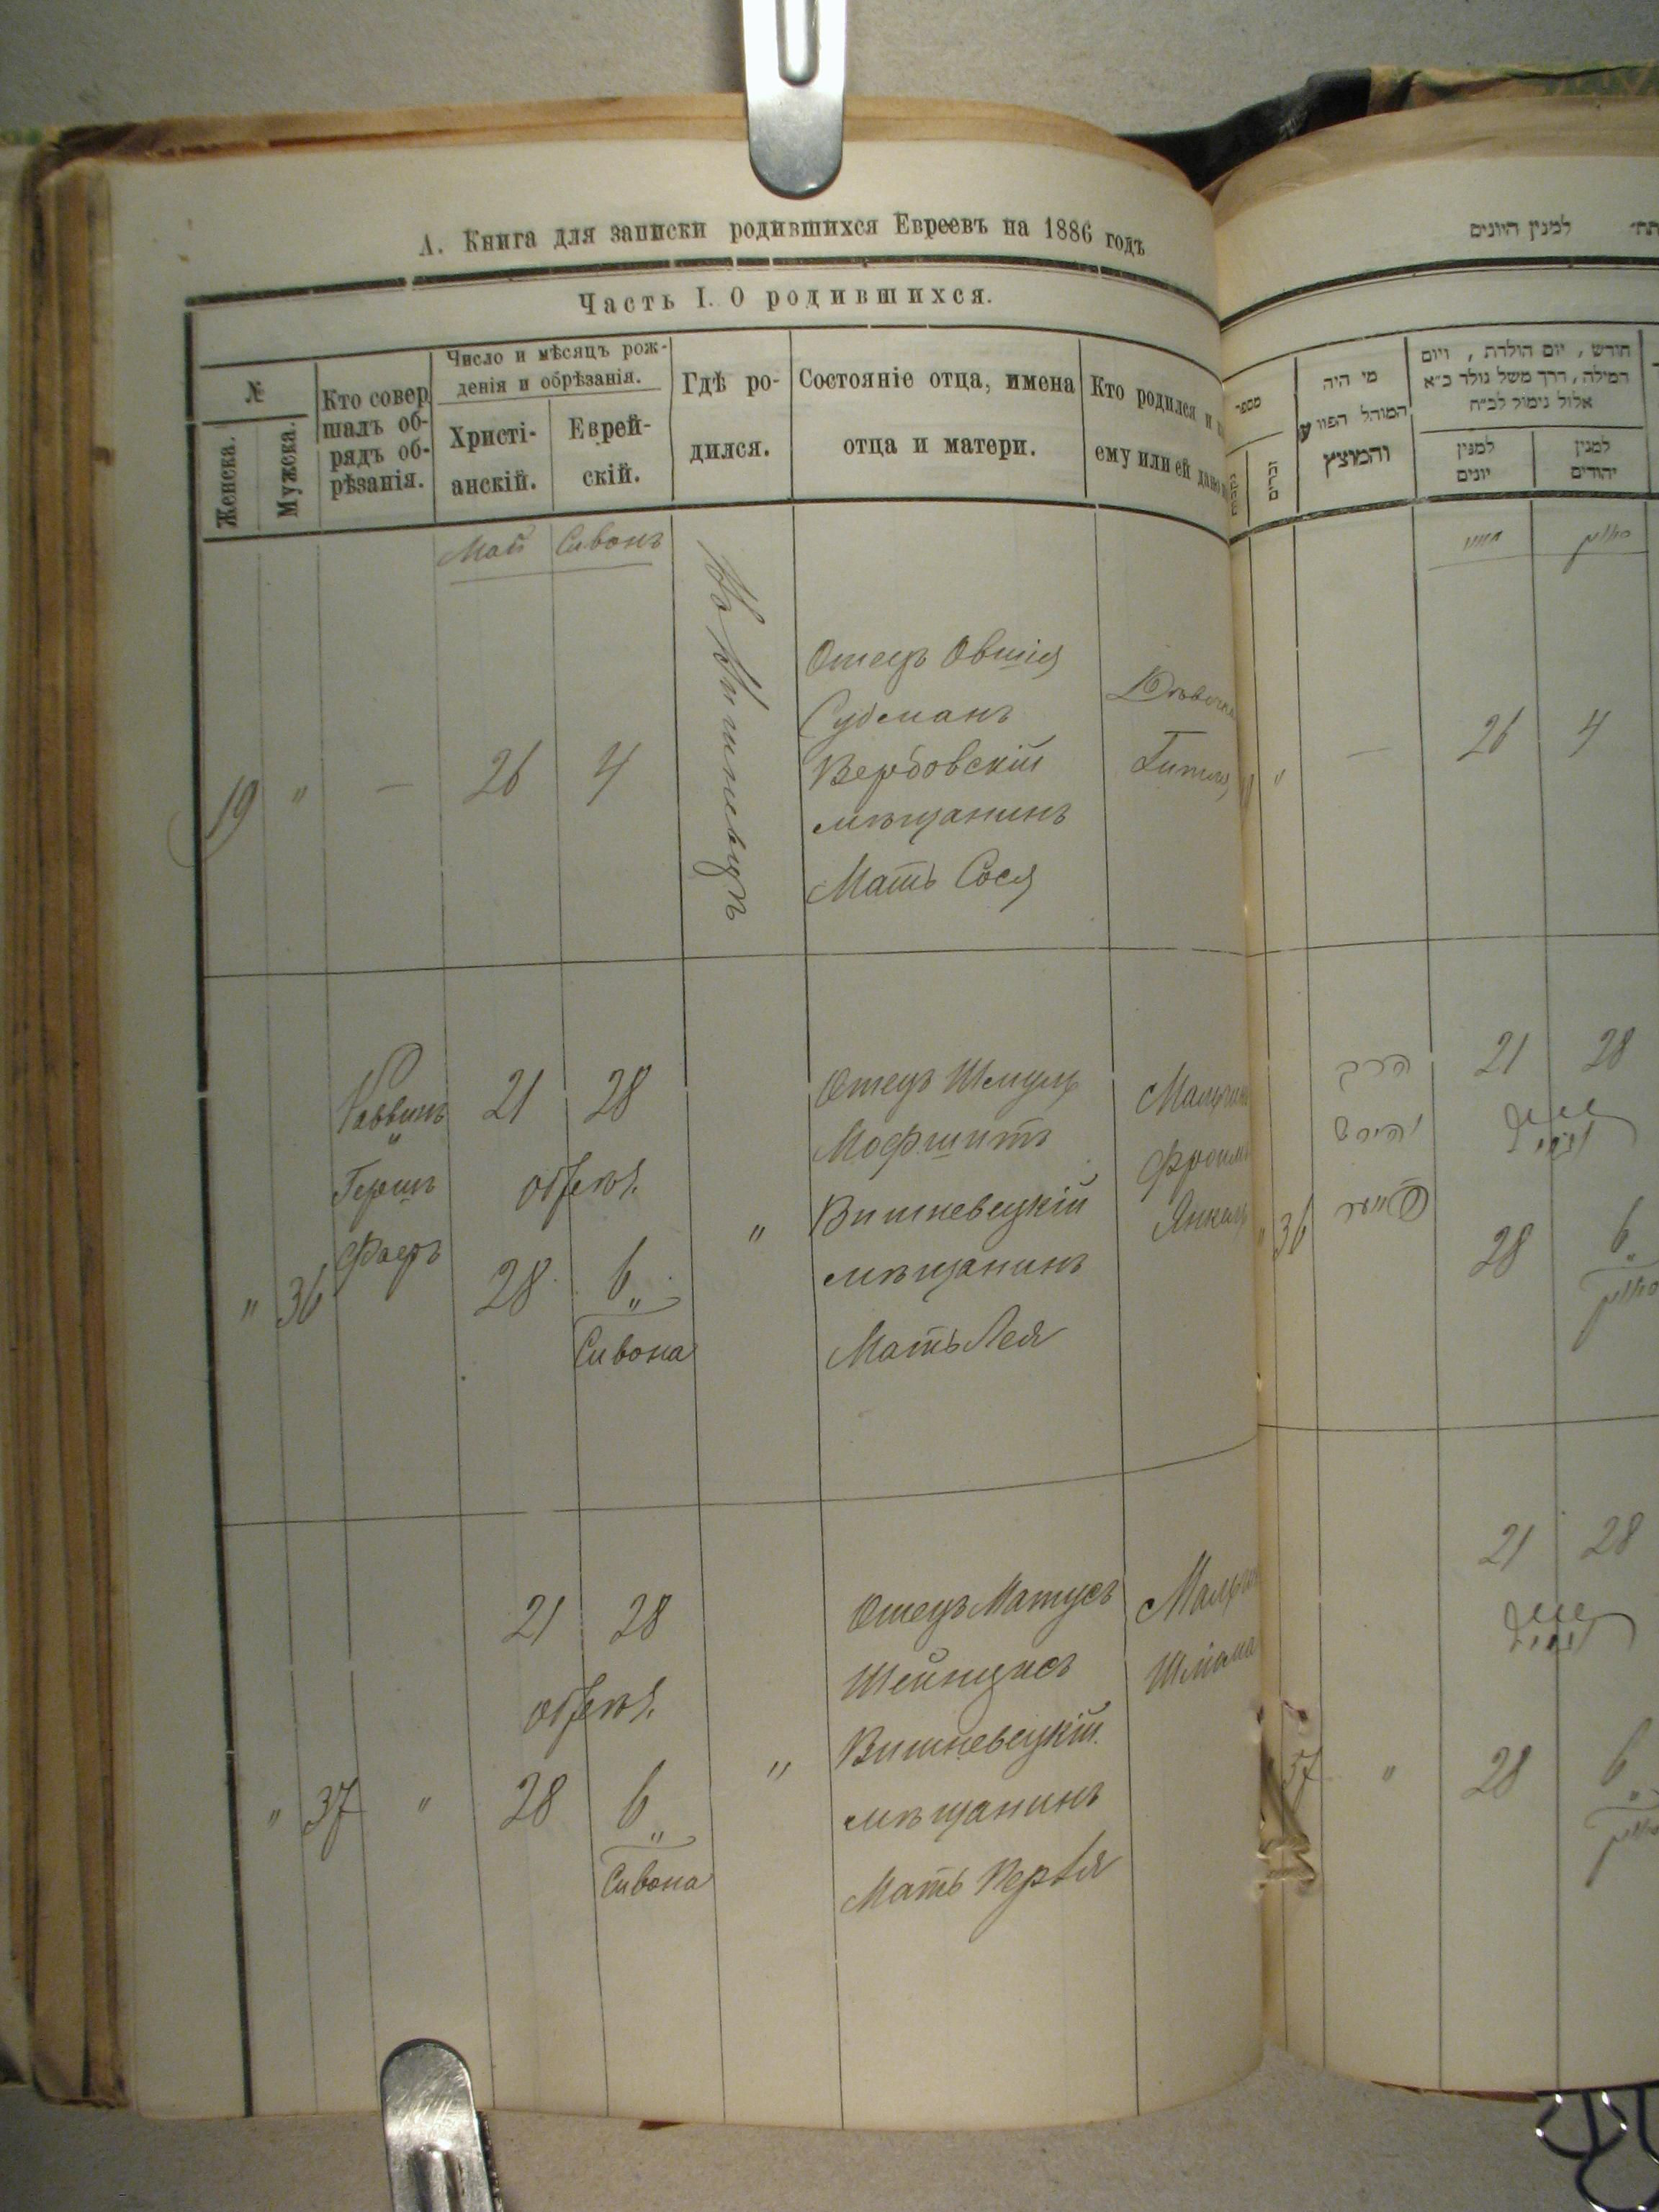 А. Книга для записки родившихся Евреевъ на 1886 годъ
Часть I. О родившихся.
№
Женска.
Мужеска.
Кто совер
шалъ об-
рядъ об-
рѣзанія.
Число и мѣсяцъ рож-
денія и обрѣзанія.
Христі-
анскій.
Еврей-
скій.
Гдѣ ро-
дился.
Состояніе отца, имена
отца и матери.
Кто родился и
ему или ей дано
Май
Сивонъ
19
"
—
26
4
Во Вишневцѣ
Отецъ Овшія
Судманъ
Вербовскій
мѣщанинъ
Мать Сося
Дѣвочка
Гитля
"
36
Раввинъ
Гершъ
Фаеръ
21
28
обрѣз.
28
6
"
Сивона
"
Отецъ Шмуль
Мофшитъ
Вишневецкій
мѣщанинъ
Мать Лея
Мальчикъ
Фроимъ
Янкель
"
37
"
21
28
обрѣз.
28
6
"
Сивона
"
Отецъ Матусъ
Вишневецкій
мѣщанинъ
Мать
למנין היונים
מספר
נקבות
זכרים
מי היה
המוהל הפורע
והמוצץ
חודש , יום הולדת , ויום
המילה, דרך משל נולד כ״א
אלול נימול לכ״ח
למנין
יונים
למנין
יהודים
מייא
סיון
"
"
—
26
4
"
36
הרב
21
28
נימול
28
6
"
סיון
37
"
21
28
נימול
28
6
"
סיון